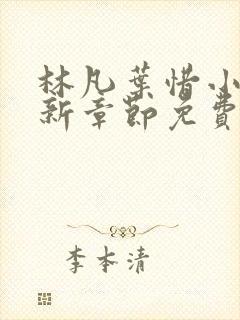 林凡葉惜小
新章節免費
李本清